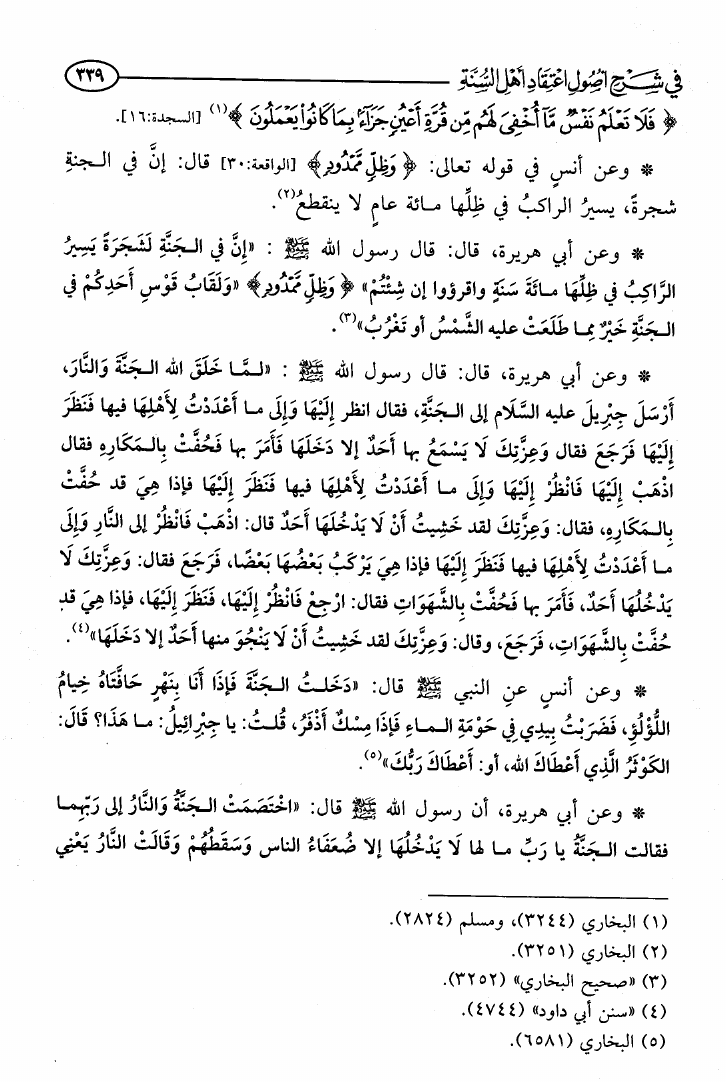 في شرح أصول اعتقاد أهل السنة
٣٣٩
﴿ فَلَا تَعْلَمُ نَفْسٌ مَّآ أُخْفِىَ لَهُم مِّن قُرَّةِ أَعْيُنٍ جَزَآءَۢ بِمَا كَانُوا۟ يَعْمَلُونَ ﴾(١) [السجدة:١٦].
* وعن أنسٍ في قوله تعالى: ﴿ وَظِلٍّ مَّمْدُودٍ ﴾ [الواقعة:٣٠] قال: إنَّ في الجنةِ
شجرةً، يسيرُ الراكبُ في ظلِّها مائة عامٍ لا ينقطعُ(٢).
* وعن أبي هريرة، قال: قال رسول الله ﷺ : «إِنَّ في الجَنَّةِ لَشَجَرَةً يَسِيرُ
الرَّاكِبُ في ظِلِّهَا مائَةَ سَنَةٍ واقرؤوا إن شِئْتُمْ» ﴿ وَظِلٍّ مَّمْدُودٍ ﴾ «وَلَقَابُ قَوْسِ أَحَدِكُمْ في
الجَنَّةِ خَيْرٌ مِما طَلَعَتْ عليه الشَّمْسُ أو تَغْرُبُ»(٣).
* وعن أبي هريرة، قال: قال رسول الله ﷺ : «لمَّا خَلَقَ الله الجَنَّةَ وَالنَّارَ،
أَرْسَلَ جِبْرِيلَ عليه السَّلَام إلى الجَنَّةِ، فقال انظر إِلَيْهَا وَإِلَى ما أَعْدَدْتُ لِأَهْلِهَا فيها فَنَظَرَ
إِلَيْهَا فَرَجَعَ فقال وَعِزَّتِكَ لَا يَسْمَعُ بها أَحَدٌ إلا دَخَلَهَا فَأَمَرَ بها فَحُفَّتْ بِالمَكَارِهِ فقال
اذْهَبْ إِلَيْهَا فَانْظُرْ إِلَيْهَا وَإِلَى ما أَعْدَدْتُ لِأَهْلِهَا فيها فَنَظَرَ إِلَيْهَا فإذا هِيَ قد حُفَّتْ
بِالمَكَارِهِ، فقال: وَعِزَّتِكَ لقد خَشِيتُ أَنْ لَا يَدْخُلَهَا أَحَدٌ قال: اذْهَبْ فَانْظُرْ إلى النَّارِ وَإِلَى
ما أَعْدَدْتُ لِأَهْلِهَا فيها فَنَظَرَ إِلَيْهَا فإذا هِيَ يَرْكَبُ بَعْضُهَا بَعْضًا، فَرَجَعَ فقال: وَعِزَّتِكَ لَا
يَدْخُلُهَا أَحَدٌ، فَأَمَرَ بها فَحُفَّتْ بِالشَّهَوَاتِ فقال: ارْجِعْ فَانْظُرْ إِلَيْهَا، فَنَظَرَ إِلَيْهَا، فإذا هِيَ قد
حُفَّتْ بِالشَّهَوَاتِ، فَرَجَعَ، وقال: وَعِزَّتِكَ لقد خَشِيتُ أَنْ لَا يَنْجُوَ منها أَحَدٌ إلا دَخَلَهَا»(٤).
* وعن أنسٍ عنِ النبي ﷺ قال: «دَخَلتُ الجَنَّةَ فَإِذَا أَنَا بِنَهْرٍ حَافَّتَاهُ خِيامُ
اللُّؤْلُؤِ، فَضَرَبْتُ بِيدِي في حَوْمَةِ الماءِ فَإِذَا مِسْكٌ أَذْفَرُ، قُلتُ: يا جِبْرائِيلُ: ما هَذَا؟ قَالَ:
الكَوْثَرُ الَّذِي أَعْطَاكَ الله، أو: أَعْطَاكَ رَبُّكَ»(٥).
* وعن أبي هريرة، أن رسول الله ﷺ قال: «اخْتَصَمَتْ الجَنَّةُ وَالنَّارُ إلى رَبِّهِما
فقالت الجَنَّةُ يا رَبِّ ما لها لَا يَدْخُلُهَا إلا ضُعَفَاءُ الناس وَسَقَطُهُمْ وَقَالَتْ النَّارُ يَعْنِي
(١) البخاري (٣٢٤٤)، ومسلم (٢٨٢٤).
(٢) البخاري (٣٢٥١).
(٣) «صحيح البخاري» (٣٢٥٢).
(٤) «سنن أبي داود» (٤٧٤٤).
(٥) البخاري (٦٥٨١).